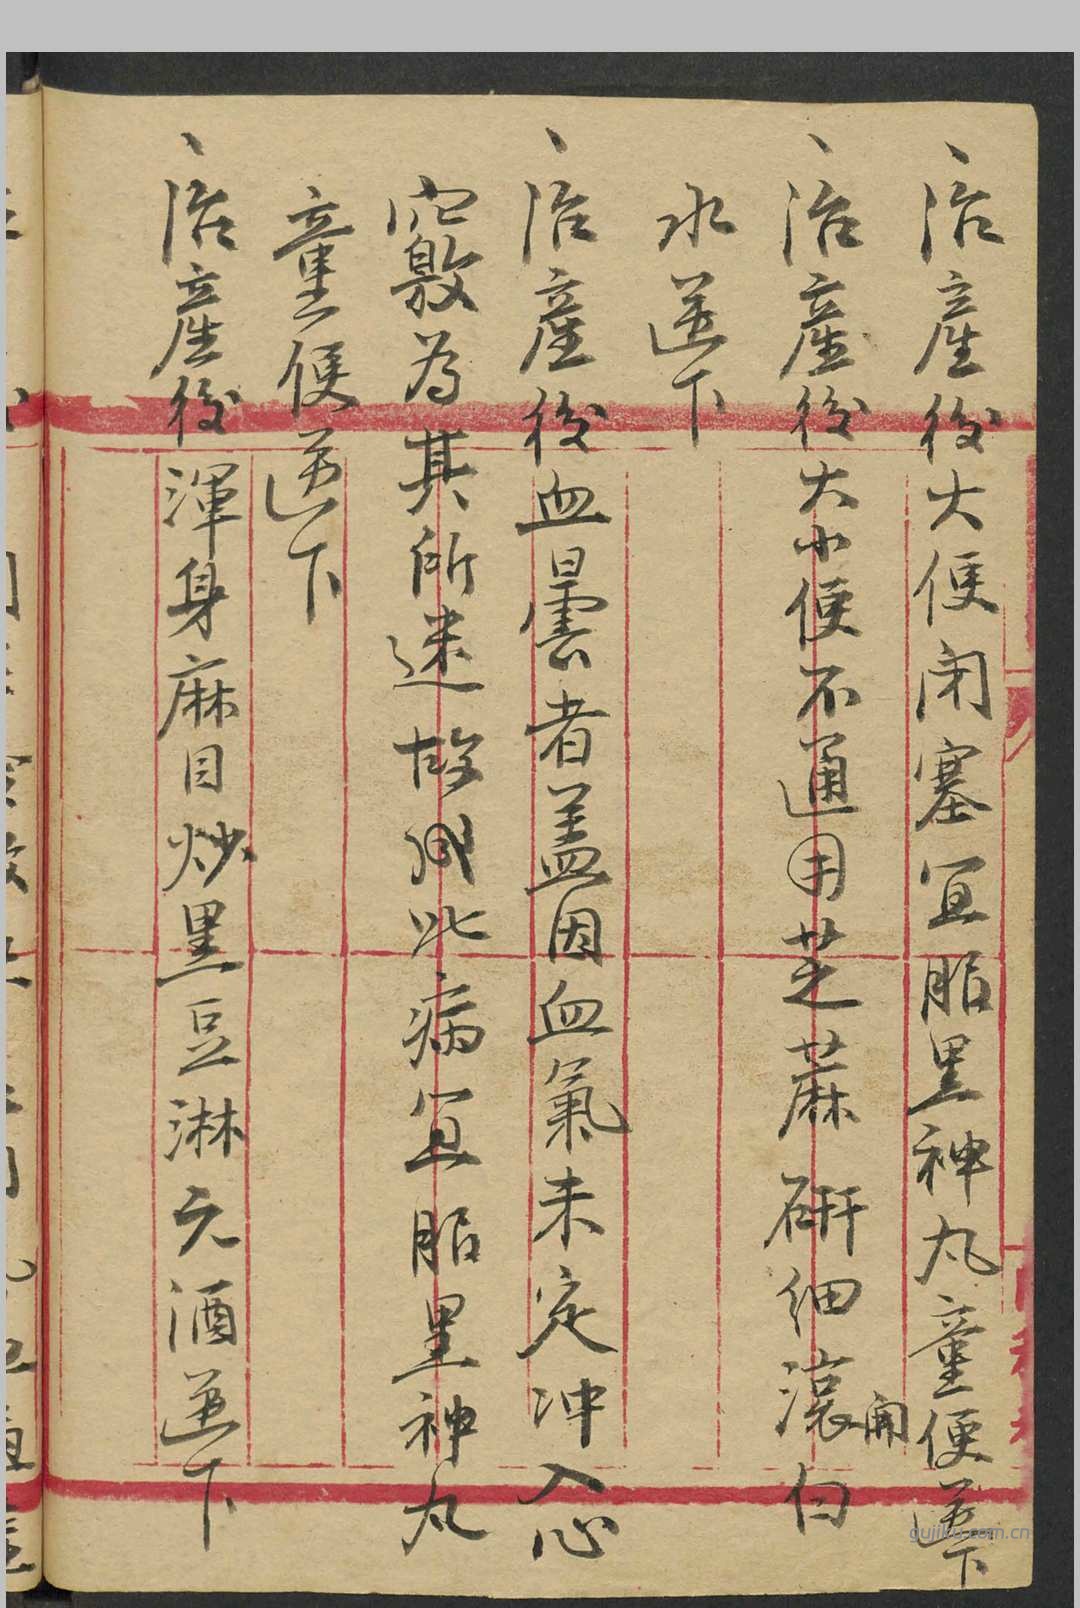 、治產後大便閉塞宜服黑神丸童便送下
、治產後大小便不通用芝蔴研細滾開白
水送下
、治產後血曇者蓋因血氣未定冲入心
竅為其所迷故成此病宜服黑神丸
童便送下
、治產後渾身麻目炒黑豆淋元酒送下
gujiku.com.cn